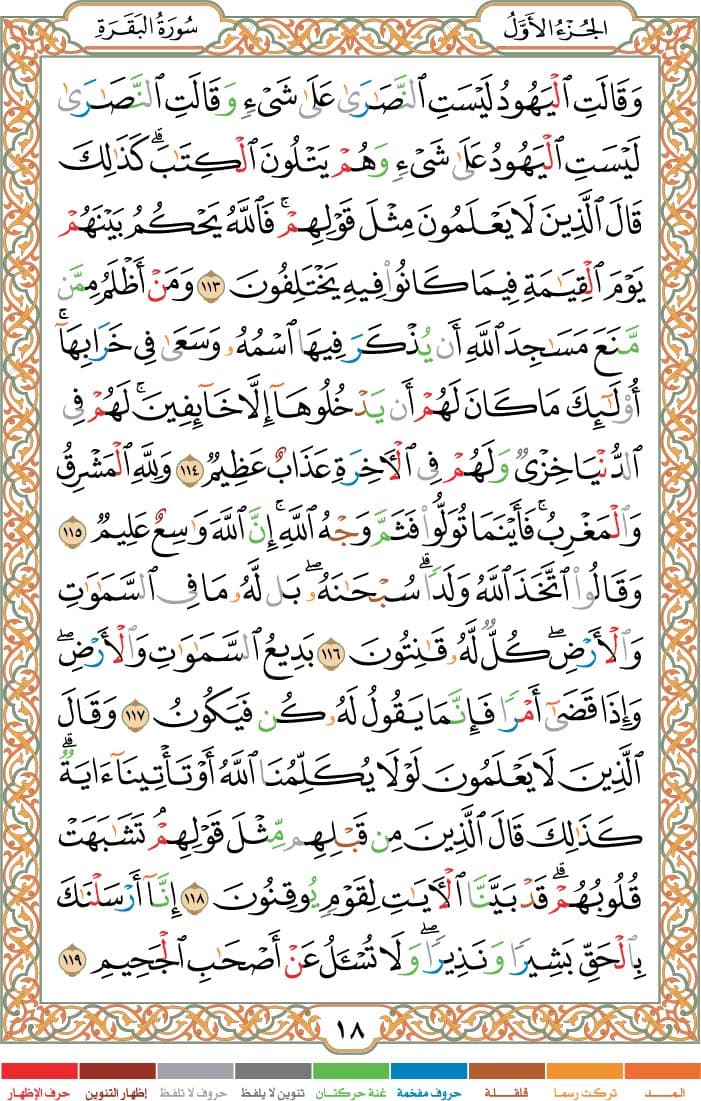 الجُزْءُ الأَوَّلُ
سُورَةُ البَقَرَةِ
وَقَالَتِ ٱلۡيَهُودُ لَيۡسَتِ ٱلنَّصَٰرَىٰ عَلَىٰ شَيۡءٖ وَقَالَتِ ٱلنَّصَٰرَىٰ
لَيۡسَتِ ٱلۡيَهُودُ عَلَىٰ شَيۡءٖ وَهُمۡ يَتۡلُونَ ٱلۡكِتَٰبَۗ كَذَٰلِكَ
قَالَ ٱلَّذِينَ لَا يَعۡلَمُونَ مِثۡلَ قَوۡلِهِمۡۚ فَٱللَّهُ يَحۡكُمُ بَيۡنَهُمۡ
يَوۡمَ ٱلۡقِيَٰمَةِ فِيمَا كَانُواْ فِيهِ يَخۡتَلِفُونَ ١١٣ وَمَنۡ أَظۡلَمُ مِمَّن
مَّنَعَ مَسَٰجِدَ ٱللَّهِ أَن يُذۡكَرَ فِيهَا ٱسۡمُهُۥ وَسَعَىٰ فِي خَرَابِهَآۚ
أُوْلَٰٓئِكَ مَا كَانَ لَهُمۡ أَن يَدۡخُلُوهَآ إِلَّا خَآئِفِينَۚ لَهُمۡ فِي
ٱلدُّنۡيَا خِزۡيٞ وَلَهُمۡ فِي ٱلۡأٓخِرَةِ عَذَابٌ عَظِيمٞ ١١٤ وَلِلَّهِ ٱلۡمَشۡرِقُ
وَٱلۡمَغۡرِبُۚ فَأَيۡنَمَا تُوَلُّواْ فَثَمَّ وَجۡهُ ٱللَّهِۚ إِنَّ ٱللَّهَ وَٰسِعٌ عَلِيمٞ ١١٥
وَقَالُواْ ٱتَّخَذَ ٱللَّهُ وَلَدٗاۗ سُبۡحَٰنَهُۥۖ بَل لَّهُۥ مَا فِي ٱلسَّمَٰوَٰتِ
وَٱلۡأَرۡضِۖ كُلّٞ لَّهُۥ قَٰنِتُونَ ١١٦ بَدِيعُ ٱلسَّمَٰوَٰتِ وَٱلۡأَرۡضِۖ
وَإِذَا قَضَىٰٓ أَمۡرٗا فَإِنَّمَا يَقُولُ لَهُۥ كُن فَيَكُونُ ١١٧ وَقَالَ
ٱلَّذِينَ لَا يَعۡلَمُونَ لَوۡلَا يُكَلِّمُنَا ٱللَّهُ أَوۡ تَأۡتِينَآ ءَايَةٞۗ
كَذَٰلِكَ قَالَ ٱلَّذِينَ مِن قَبۡلِهِم مِّثۡلَ قَوۡلِهِمۡۘ تَشَٰبَهَتۡ
قُلُوبُهُمۡۗ قَدۡ بَيَّنَّا ٱلۡأٓيَٰتِ لِقَوۡمٖ يُوقِنُونَ ١١٨ إِنَّآ أَرۡسَلۡنَٰكَ
بِٱلۡحَقِّ بَشِيرٗا وَنَذِيرٗاۖ وَلَا تُسۡـَٔلُ عَنۡ أَصۡحَٰبِ ٱلۡجَحِيمِ ١١٩
١٨
المــــد تركت رسما قلقـــلة حروف مفخمة غنة حركتان تنوين لا يلفظ حروف لا تلفظ إظهار التنوين حرف الإظهار